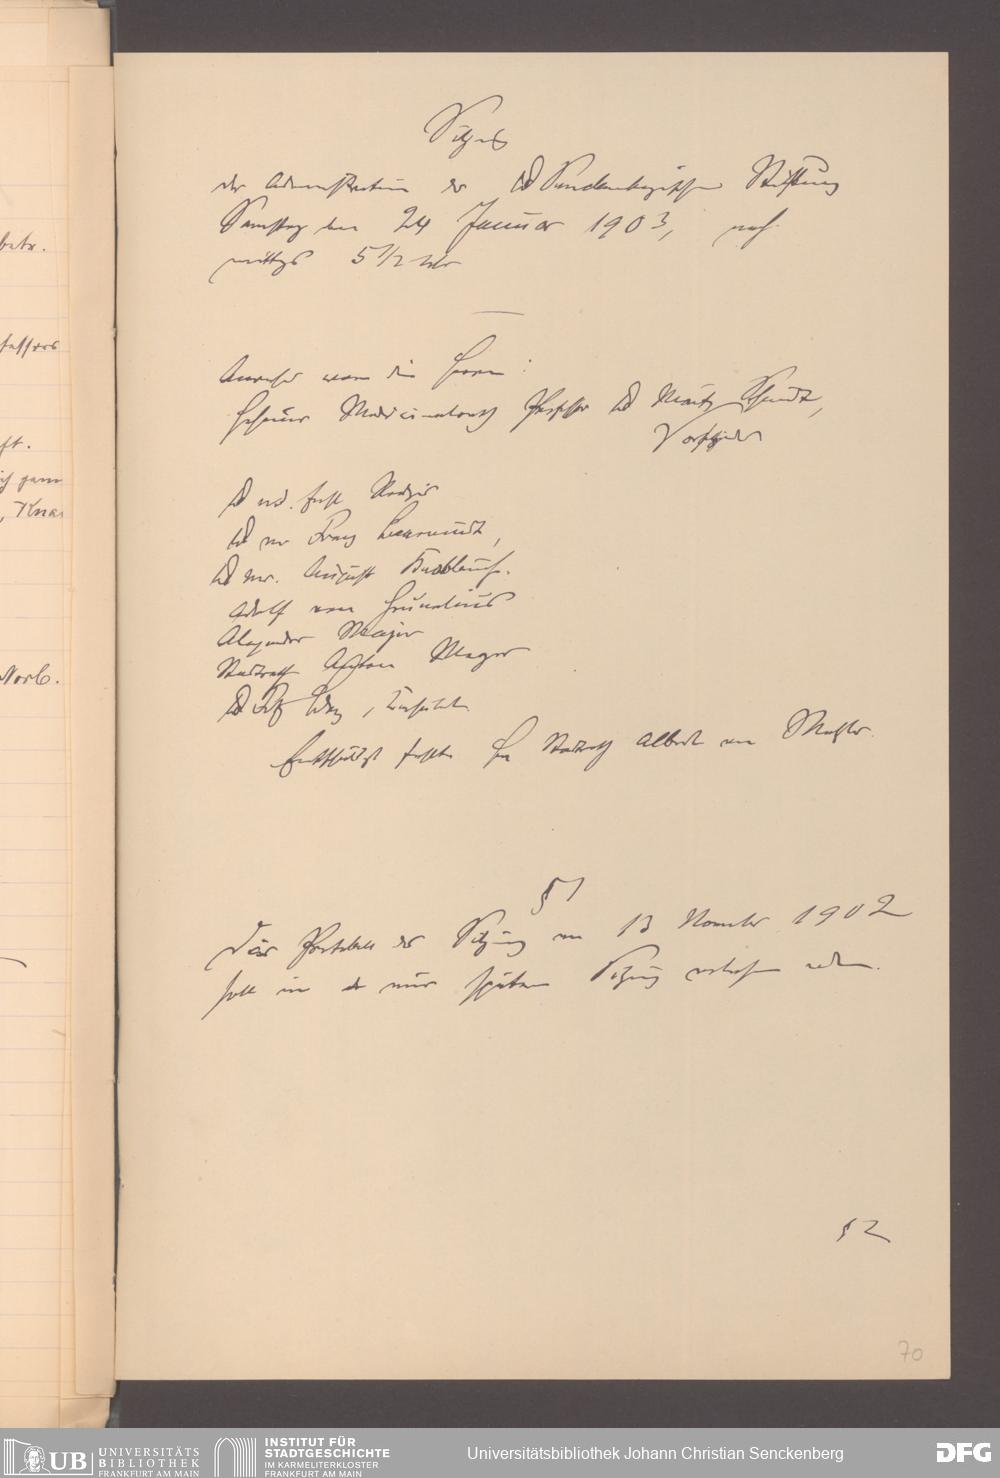 Sitzung
der Administration der Dr Senckenbergischen Stiftung
Samstag den 24 Januar 1903, nach-
mittags 5 1/2 Uhr
Anwesend waren die Herren:
Geheimer Medicinalrath Professor Dr Moritz Schmidt,
Vorsitzender
Dr med. Ernst Roediger
Dr med Franz
Dr med. August Knoblauch.
Adolf von Grunelius
Alexander Majer
Stadtrath Anton Meyer
Dr Fritz Berg, Consulent.
Entschuldigt fehlte Herr Stadtrath Albert von Metzler.
§ 1
Das Protokoll der Sitzung vom 13 November 1902
soll in der nur späteren Sitzung verlesen werden.
§ 2
70
betr.
ch ganz
, Kna
Norb.
UB UNIVERSITÄTS
BIBLIOTHEK
FRANKFURT AM MAIN
INSTITUT FÜR
STADTGESCHICHTE
IM KARMELITERKLOSTER
FRANKFURT AM MAIN
Universitätsbibliothek Johann Christian Senckenberg
DFG